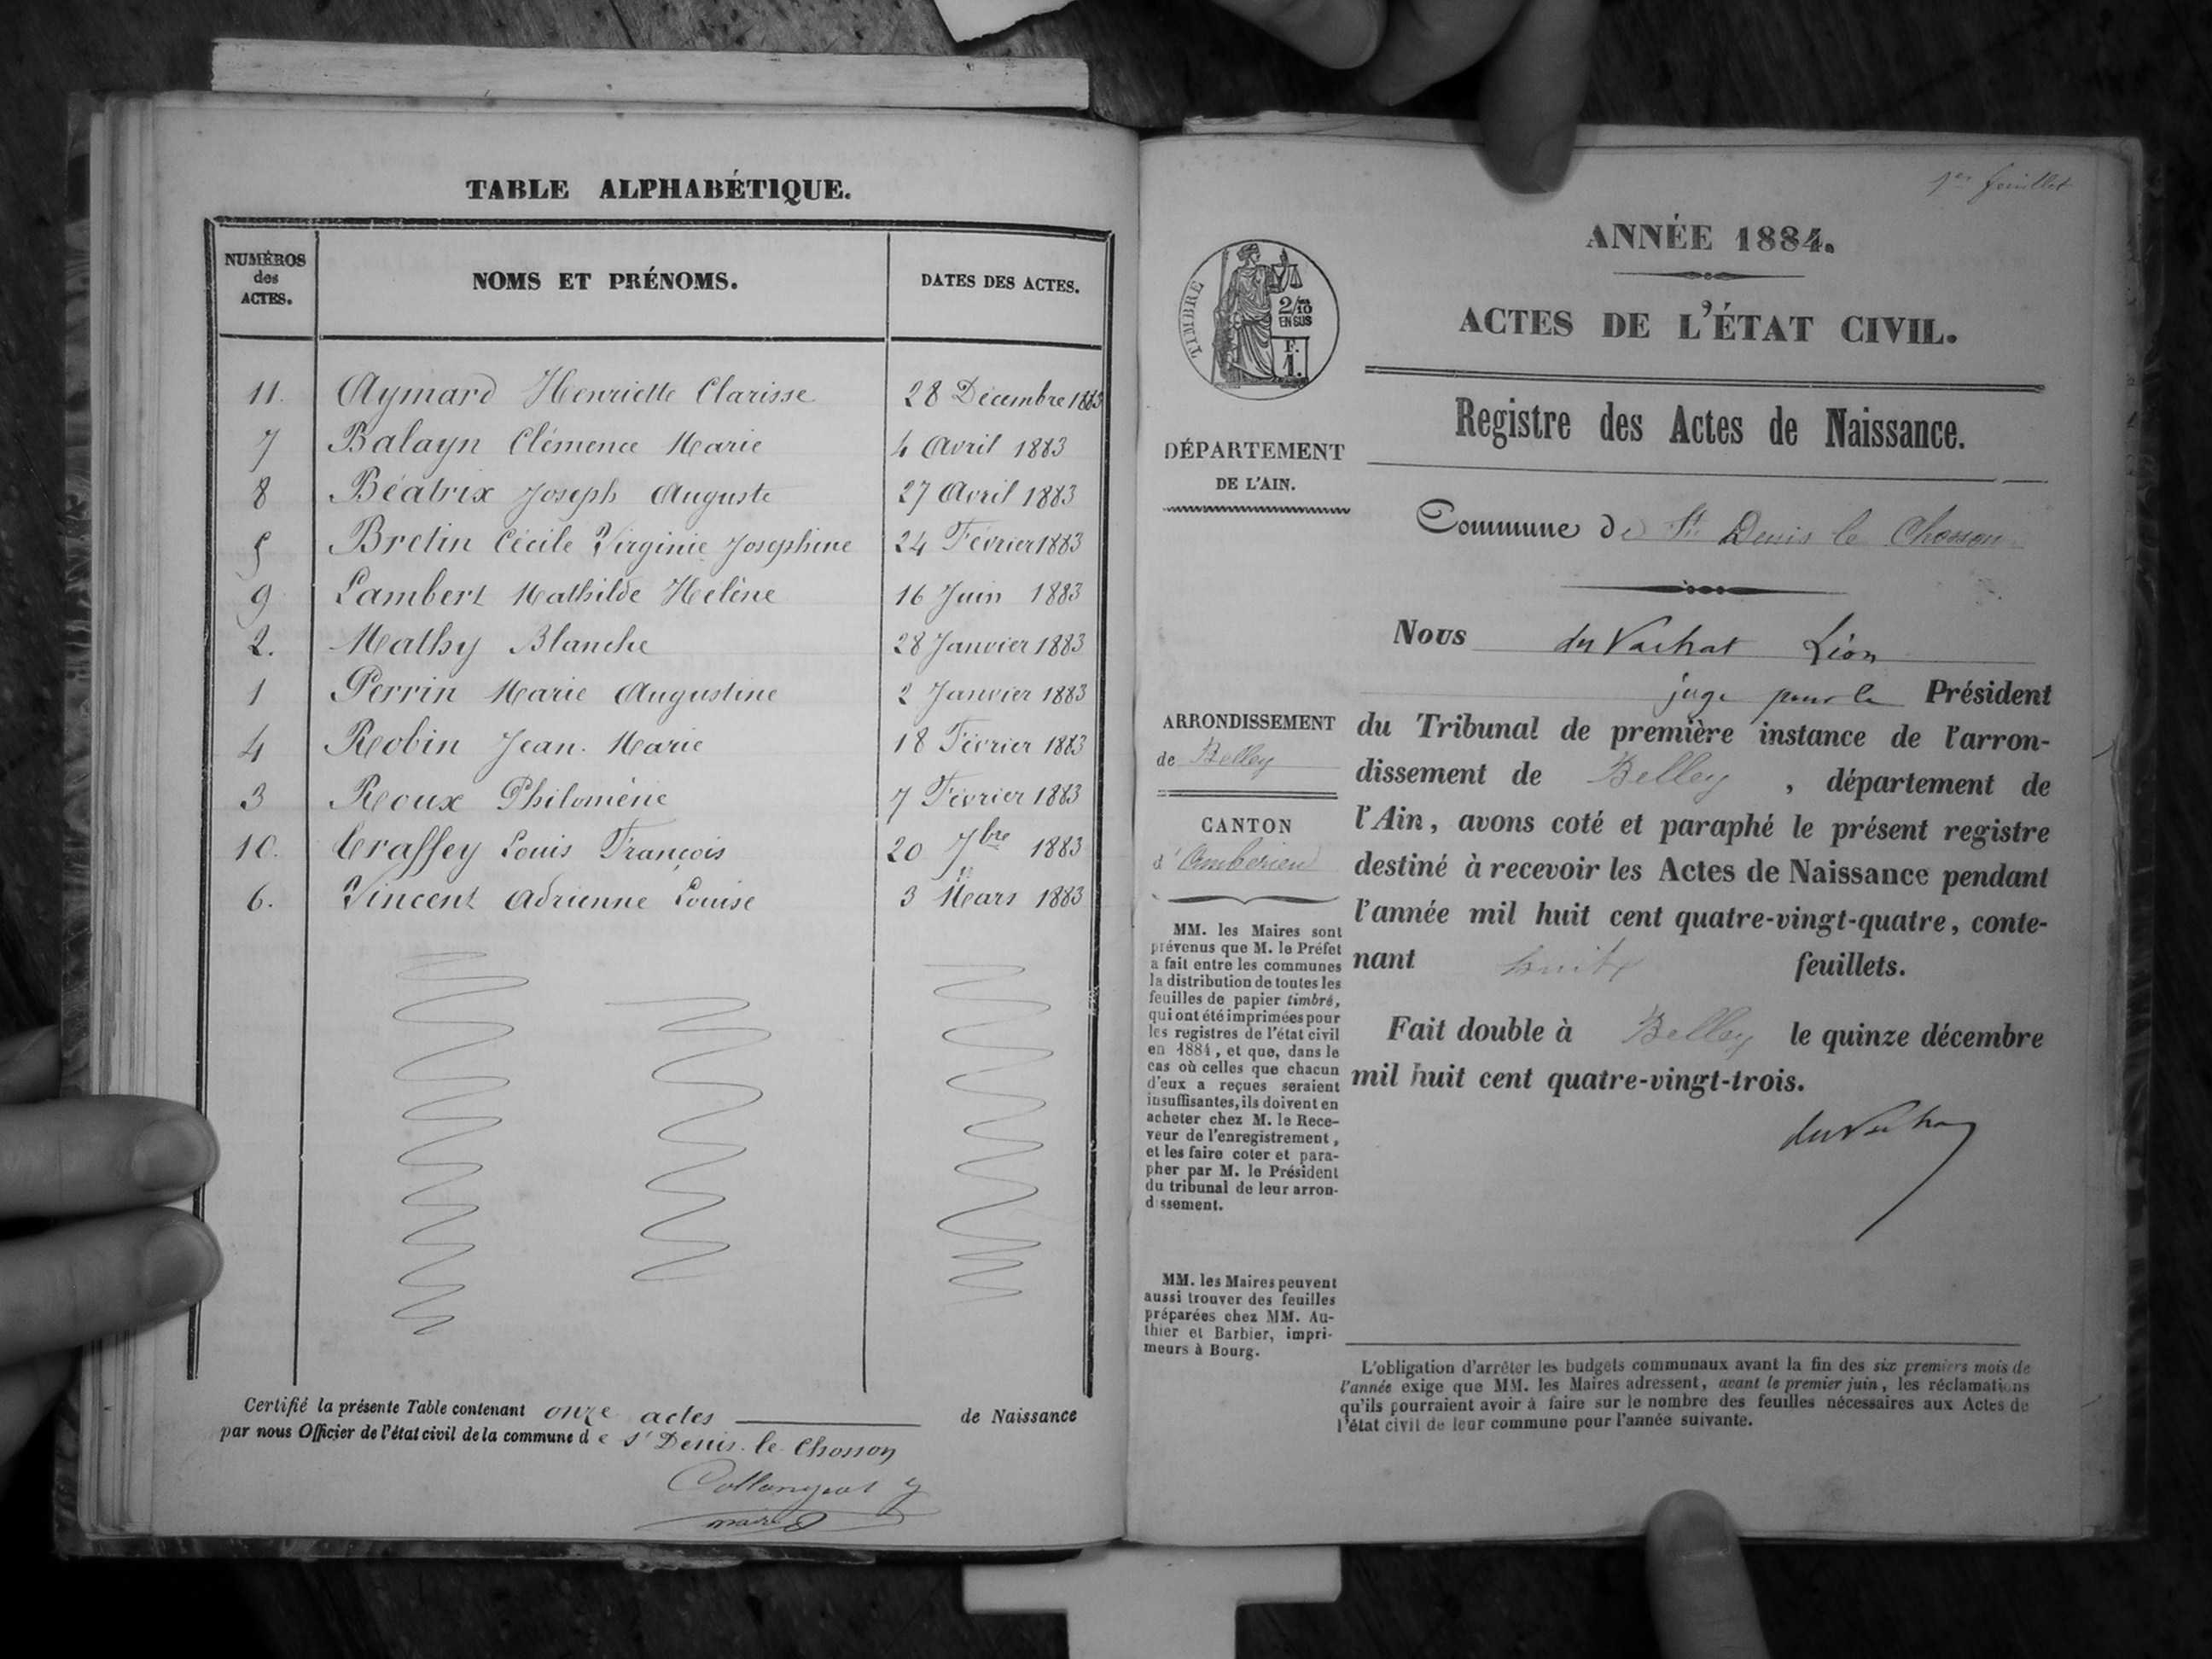 TABLE ALPHABÉTIQUE.
NUMÉROS des ACTES.
NOMS ET PRÉNOMS.
DATES DES ACTES.
11. Aymard Henriette Clarisse 28 Décembre 1883
7 Balayn Clémence Marie 4 Avril 1883
8 Béatrix Joseph Auguste 27 Avril 1883
5 Bretin Cécile Virginie Joséphine 24 Février 1883
9 Lambert Mathilde Hélène 16 Juin 1883
2. Mathy Blanche 28 Janvier 1883
1 Perrin Marie Augustine 2 Janvier 1883
4 Robin Jean-Marie 18 Février 1883
3 Roux Philomène 7 Février 1883
10. Craffey Louis François 20 7bre 1883
6. Vincent Adrienne Louise 3 Mars 1883
Certifié la présente Table contenant onze actes de Naissance
par nous Officier de l'état civil de la commune de St Denis-le-Chosson
maire
1er feuillet
ANNÉE 1884.
ACTES DE L'ÉTAT CIVIL.
TIMBRE
2/10
EN SUS
F.
1.
Registre des Actes de Naissance.
DÉPARTEMENT
DE L'AIN.
Commune de St Denis le Chosson
Nous du Vachat Léon
juge pour le Président
du Tribunal de première instance de l'arron-
dissement de Belley, département de
l'Ain, avons coté et paraphé le présent registre
destiné à recevoir les Actes de Naissance pendant
l'année mil huit cent quatre-vingt-quatre, conte-
nant huit feuillets.
Fait double à Belley le quinze décembre
mil huit cent quatre-vingt-trois.
du Vachat
ARRONDISSEMENT
de Belley
CANTON
d'Ambérieu
MM. les Maires sont
prévenus que M. le Préfet
a fait entre les communes
la distribution de toutes les
feuilles de papier timbré,
qui ont été imprimées pour
les registres de l'état civil
en 1884, et que, dans le
cas où celles que chacun
d'eux a reçues seraient
insuffisantes, ils doivent en
acheter chez M. le Rece-
veur de l'enregistrement,
et les faire coter et para-
pher par M. le Président
du tribunal de leur arron-
dissement.
MM. les Maires peuvent
aussi trouver des feuilles
préparées chez MM. Au-
thier et Barbier, impri-
meurs à Bourg.
L'obligation d'arrêter les budgets communaux avant la fin des six premiers mois de
l'année exige que MM. les Maires adressent, avant le premier juin, les réclamations
qu'ils pourraient avoir à faire sur le nombre des feuilles nécessaires aux Actes de
l'état civil de leur commune pour l'année suivante.